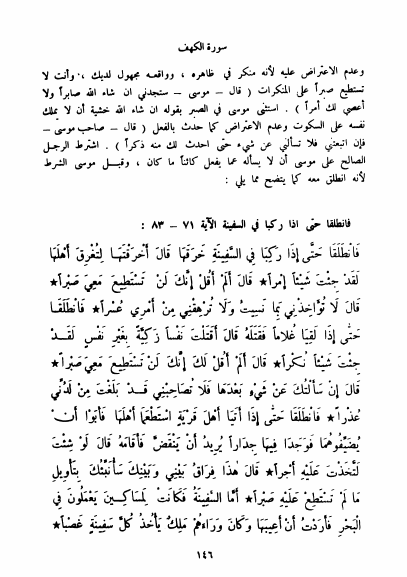 سورة الكهف
وعدم الاعتراض عليه لأنه منكر في ظاهره ، وواقعه مجهول لديك ، وأنت لا
تستطيع صبراً على المنكرات ( قال – موسى – ستجدني ان شاء الله صابراً ولا
أعصي لك أمراً ) . استثنى موسى في الصبر بقوله ان شاء الله خشية أن لا يملك
نفسه على السكوت وعدم الاعتراض كما حدث بالفعل ( قال – صاحب موسى –
فإن اتبعتني فلا تسألني عن شيء حتى احدث لك منه ذكراً ) . اشترط الرجل
الصالح على موسى أن لا يسأله عما يفعل كائناً ما كان ، وقبل موسى الشرط
لأنه انطلق معه كما يتضح مما يلي :
فانطلقا حتى اذا ركبا في السفينة الآية ٧١ – ٨٣ :
فَانْطَلَقَا حَتَّى إِذَا رَكِبَا فِي السَّفِينَةِ خَرَقَهَا قَالَ أَخَرَقْتَهَا لِتُغْرِقَ أَهْلَهَا
لَقَدْ جِئْتَ شَيْئاً إِمْراً★ قَالَ أَلَمْ أَقُلْ إِنَّكَ لَنْ تَسْتَطِيعَ مَعِيَ صَبْراً★
قَالَ لَا تُؤَاخِذْنِي بِمَا نَسِيتُ وَلَا تُرْهِقْنِي مِنْ أَمْرِي عُسْراً★ فَانْطَلَقَا
حَتَّى إِذَا لَقِيَا غُلَاماً فَقَتَلَهُ قَالَ أَقَتَلْتَ نَفْساً زَكِيَّةً بِغَيْرِ نَفْسٍ لَقَدْ
جِئْتَ شَيْئاً نُكْراً★ قَالَ أَلَمْ أَقُلْ لَكَ إِنَّكَ لَنْ تَسْتَطِيعَ مَعِيَ صَبْراً★
قَالَ إِنْ سَأَلْتُكَ عَنْ شَيْءٍ بَعْدَهَا فَلَا تُصَاحِبْنِي قَدْ بَلَغْتَ مِنْ لَدُنِّي
عُذْراً★ فَانْطَلَقَا حَتَّى إِذَا أَتَيَا أَهْلَ قَرْيَةٍ اسْتَطْعَمَا أَهْلَهَا فَأَبَوْا أَنْ
يُضَيِّفُوهُمَا فَوَجَدَا فِيهَا جِدَاراً يُرِيدُ أَنْ يَنْقَضَّ فَأَقَامَهُ قَالَ لَوْ شِئْتَ
لَتَّخَذْتَ عَلَيْهِ أَجْراً★ قَالَ هٰذَا فِرَاقُ بَيْنِي وَبَيْنِكَ سَأُنَبِّئُكَ بِتَأْوِيلِ
مَا لَمْ تَسْتَطِعْ عَلَيْهِ صَبْراً★ أَمَّا السَّفِينَةُ فَكَانَتْ لِمَسَاكِينَ يَعْمَلُونَ فِي
الْبَحْرِ فَأَرَدْتُ أَنْ أَعِيبَهَا وَكَانَ وَرَاءَهُمْ مَلِكٌ يَأْخُذُ كُلَّ سَفِينَةٍ غَصْباً★
١٤٦